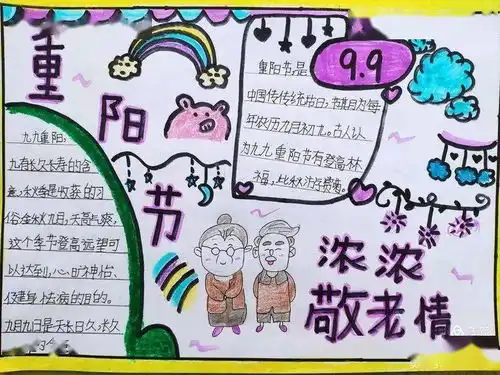 重阳节
9.9
重阳节,是
中国传统节日,节期为每
年农历九月初九。古人认
为九九重阳节有登高祈
福、比秋游赏菊。
九九重阳,
九有长久长寿的含
意,秋季是收获的习
俗,金秋九月,天高气爽,
这个季节登高远望可
以达到,心旷神怡、
健身祛病的目的。
九月九日是天长日久,
浓浓
敬老情